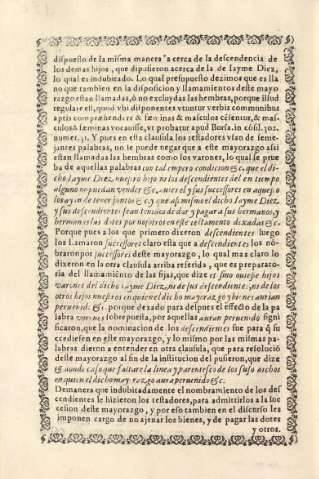 dispuesto de la misma manera a cerca de la descendencia de
los demas hijos, que dipusieron acerca de la de Iayme Diez,
lo qual es indubitado. Lo qual presupuesto dezimos que es lla
no que tambien en la disposicion y llamamientos deste mayo
razgo estan llamadas, ò no excluydas las hembras, porque illud
regulare est, quod vbi disponentes vtuntur verbis communibus
aptis comprehendere &c fœminas & masculos censentur, & mas
culos & fœminas vocauisse, vt probatur apud Burs. in consi.
numer. 31. Y pues en esta clausula los testadores vsan de seme-
jantes palabras, no se puede negar que a este mayorazgo assi
estan llamadas las hembras como los varones, lo qual se prue
ba de aquellas palabras con tal empero condicion &c, que el di-
cho Iayme Diez, nuestro hijo ni los descendientes del en tiempo
alguno no puedan vender &c, auer el y sus successores en aquesto
los ayan de tener juntos &c. y que assi mismo el dicho Iayme Diez,
y sus descendientes sean tenidos de dar y pagar a sus hermanos y
hermanas las dotes por nosotros en este testamento dexadas &c.
Porque pues a los que primero dixeron descendientes luego
los llamaron successores claro esta que a descendientes los nó-
braron por successores deste mayorazgo, lo qual mas claro lo
dixeron en la otra clausula arriba referida, que es preparato-
ria del llamamiento de las hijas, que dize si sino ouiesse hijos
varones del dicho Iayme Diez, ni de sus descendientes, ni de los
otros hijos nuestros in quien el dicho mayorazgo y bienes aurian
peruenido &c. porque dexado para despues el effecto de la pa
labra varones sobrepuesta, por aquellas auran peruenido signi
ficaron, que la nominacion de los descendientes fue para q̃ su
cediessen en este mayorazgo, y lo mismo por las mismas pa-
labras dieron a entender en otra clausula, que para resoluciõ
deste mayorazgo al fin de la institucion del pusieron, que dize
& aundo caso que faltare la linea y parentesco de los suso dichos
en quien el dicho mayorazgo aura peruenido &c.
Demanera que indubitadamente el nombramiento de los des
cendientes le hizieron los testadores, para admitirlos a la suc
cession deste mayorazgo, y por esso tambien en el discurso les
imponen cargo de no ajenar los bienes, y de pagar las dotes
y otros.